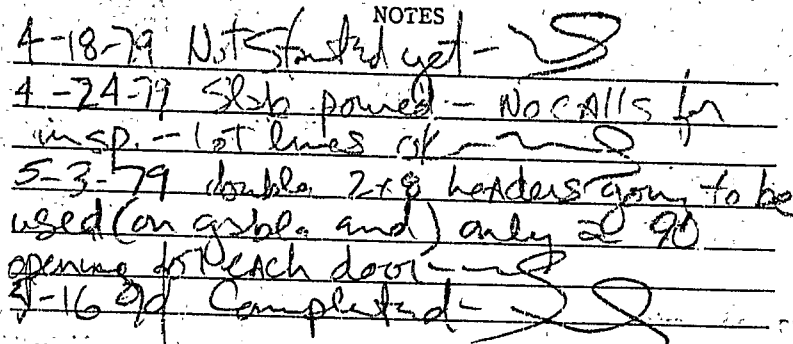 NOTES
4-18-79 Not Started yet -
4-24-79 Slab poured - No calls for
insp. - lot lines ok -
5-3-79 double 2x8 headers going to be
used (on gable end) only a 90
opening for each door -
5-16-79 Completed -